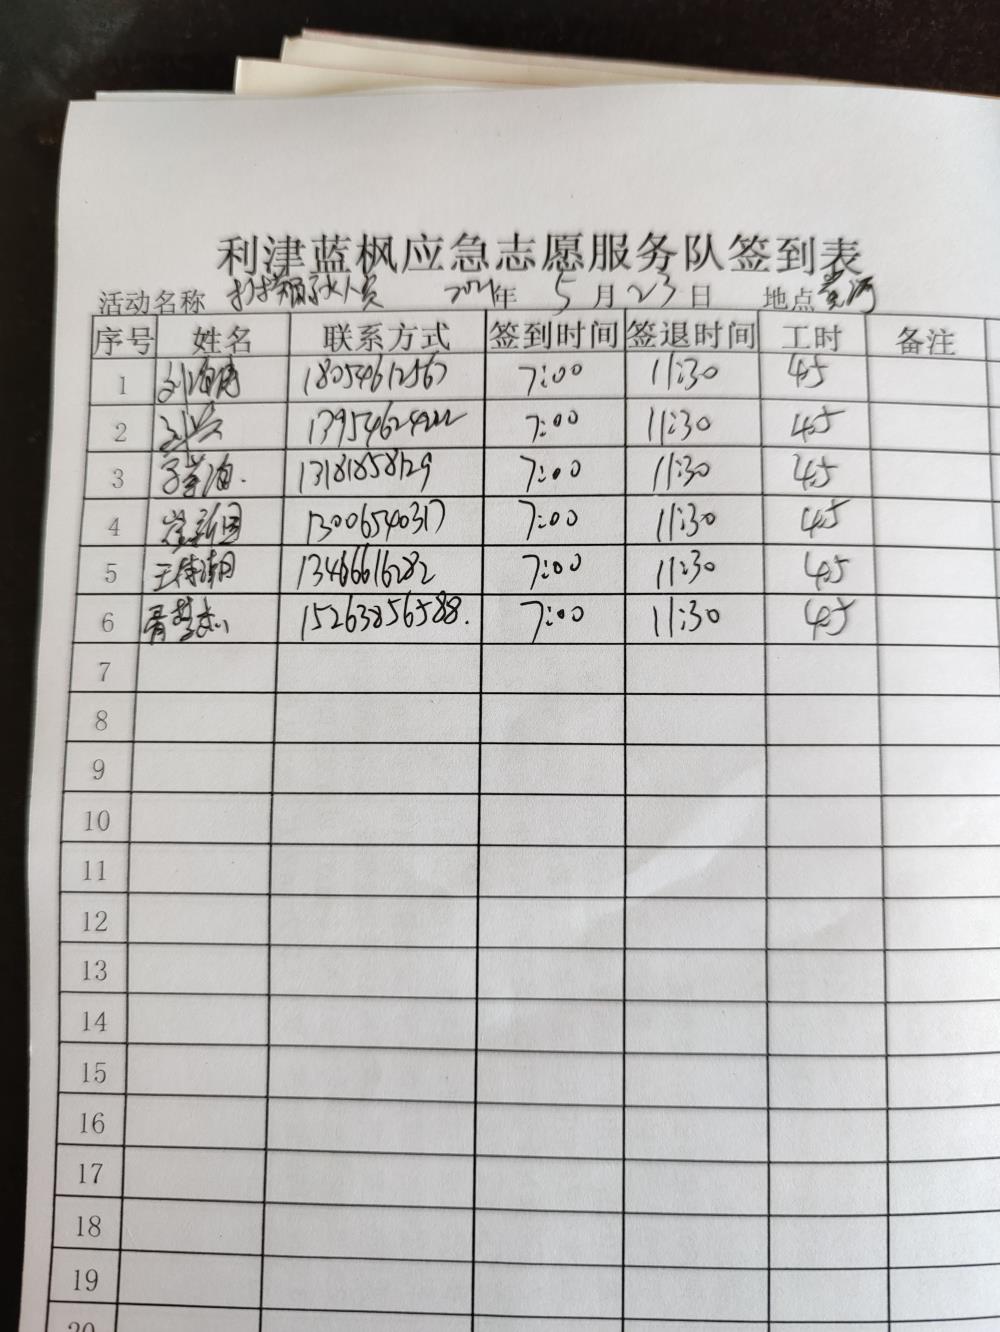 利津蓝枫应急志愿服务队签到表
活动名称 打捞溺水人员 2021年 5 月 23 日 地点 黄河
序号 姓名 联系方式 签到时间 签退时间 工时 备注
1 18054612567 7:00 11:30 4.5
2 刘兴 7:00 11:30 4.5
3 13181858129 7:00 11:30 4.5
4 13006540317 7:00 11:30 4.5
5 13466616282 7:00 11:30 4.5
6 15263856588. 7:00 11:30 4.5
7
8
9
10
11
12
13
14
15
16
17
18
19
20